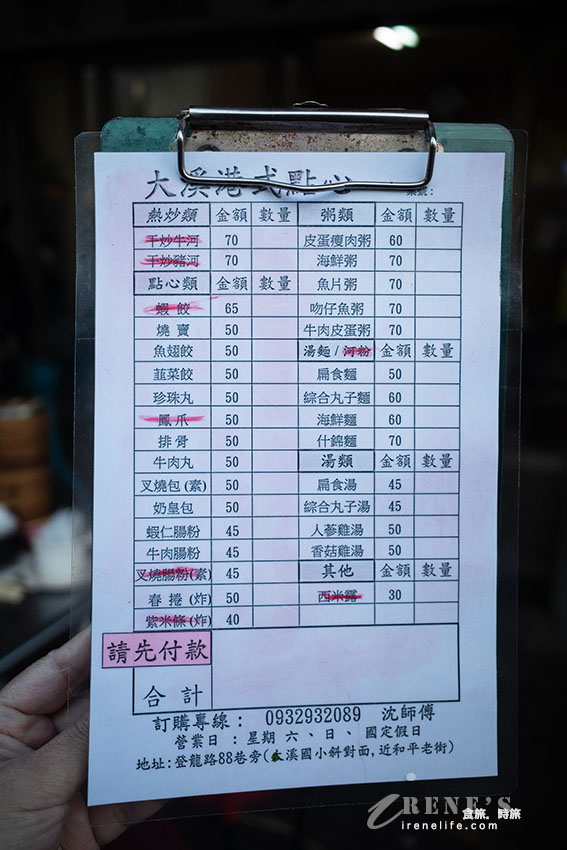 大溪港式點心
熱炒類 金額 數量 粥類 金額 數量
干炒牛河 70 皮蛋瘦肉粥 60
干炒豬河 70 海鮮粥 70
點心類 金額 數量 魚片粥 70
蝦餃 65 吻仔魚粥 70
燒賣 50 牛肉皮蛋粥 70
魚翅餃 50 湯麵/河粉 金額 數量
韮菜餃 50 扁食麵 50
珍珠丸 50 綜合丸子麵 60
鳳爪 50 海鮮麵 60
排骨 50 什錦麵 70
牛肉丸 50 湯類 金額 數量
叉燒包(素) 50 扁食湯 45
奶皇包 50 綜合丸子湯 45
蝦仁腸粉 45 人蔘雞湯 50
牛肉腸粉 45 香菇雞湯 50
叉燒腸粉(素) 45 其他 金額 數量
春捲(炸) 50 西米露 30
紫米條(炸) 40
請先付款
合計
訂購專線: 0932932089 沈師傅
營業日:星期 六、日、國定假日
地址:登龍路88巷旁(大溪國小斜對面,近和平老街)
iRENE'S
食旅。時旅
irenelife.com